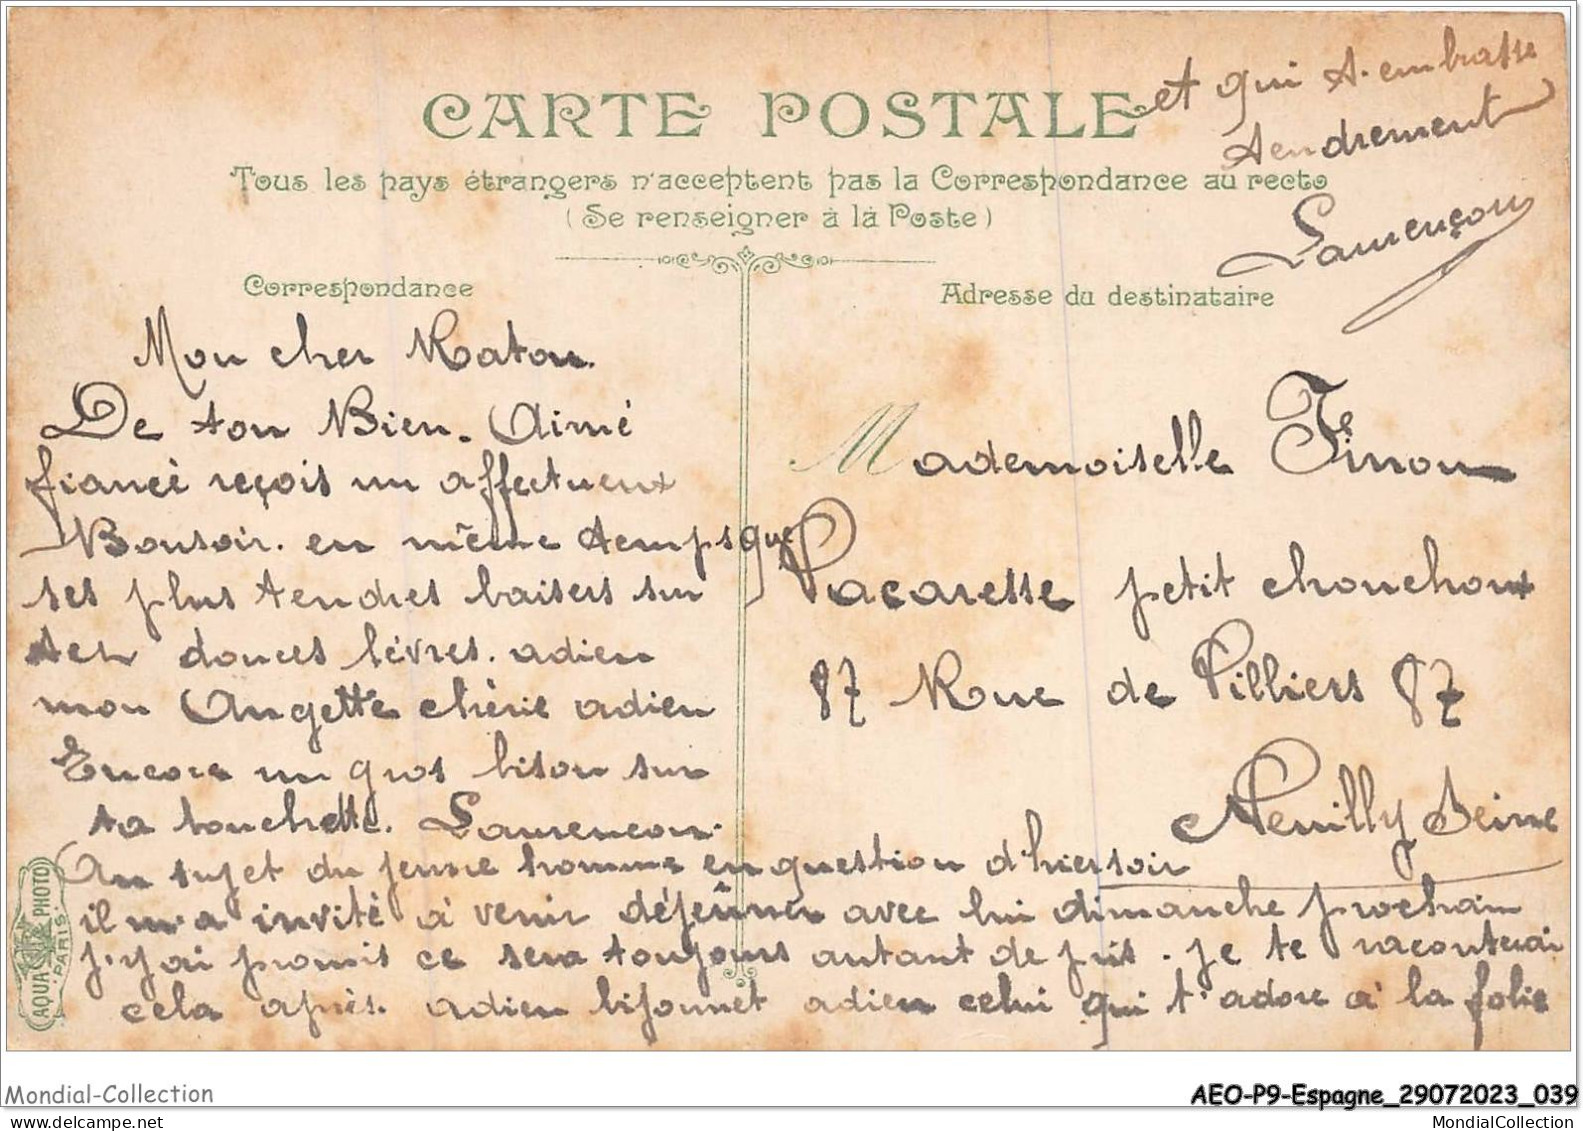 CARTE POSTALE
Tous les pays étrangers n'acceptent pas la Correspondance au recto
(Se renseigner à la Poste)
Correspondance
Adresse du destinataire
Mon cher Raton.
De ton Bien-Aimé
fiancé reçois un affectueux
Bonsoir. en même temps que
ses plus tendres baisers sur
tes douces lèvres. adieu
mon Angette chérie adieu
Encore un gros bison sur
ta bouchette. Laurençon.
Au sujet du jeune homme en question d'hier soir
il m'a invité à venir déjeûner avec lui dimanche prochain
j'y ai promis ce sera toujours autant de pris. je te raconterai
cela après. adieu bijounet adieu celui qui t'adore à la folie
et qui t'embrasse
tendrement
Laurençon
Mademoiselle Finon
Pacaresse petit chouchoux
87 Rue de Villiers 87
Neuilly Seine
AQUA PHOTO
PARIS
Mondial-Collection
AEO-P9-Espagne_29072023_039
mondialcollection
MondialCollection